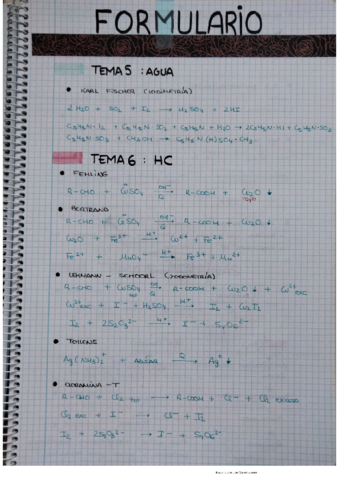 FORMULARIO
TEMA 5 : AGUA
• KARL FISCHER (IODOMETRÍA)
2H2O + SO2 + I2 → H2SO4 + 2HI
C5H5N·I2 + C5H5N·SO2 + C5H5N + H2O → 2C5H5N·HI + C5H5N·SO3
C5H5N·SO3 + CH3OH → C5H5N(H)SO4-CH3
TEMA 6 : HC
• FEHLING
R-CHO + CuSO4 OH- Q R-COOH + Cu2O ↓
rojo
• BERTRAND
R-CHO + CuSO4 OH- Q R-COOH + Cu2O ↓
Cu2O + Fe3+ H+ → Cu2+ + Fe2+
Fe2+ + MnO4- H+ → Fe3+ + Mn2+
• LEHMANN - SCHOORL (IODOMETRÍA)
R-CHO + CuSO4 OH- Q R-COOH + Cu2O ↓ + Cu2+ exc
Cu2+ exc + I- + H2SO4 H+ → I2 + Cu2I2
I2 + 2S2O3 2- H+ → I- + S4O6 2-
• TOLLENS
Ag(NH3)2+ + AZÚCAR Q → Ag ↓
• CLORAMINA -T
R-CHO + Cl2 → R-COOH + Cl- + Cl2 exceso
Cl2 exc + I- → Cl- + I2
I2 + 2S2O3 2- → I- + S4O6 2-